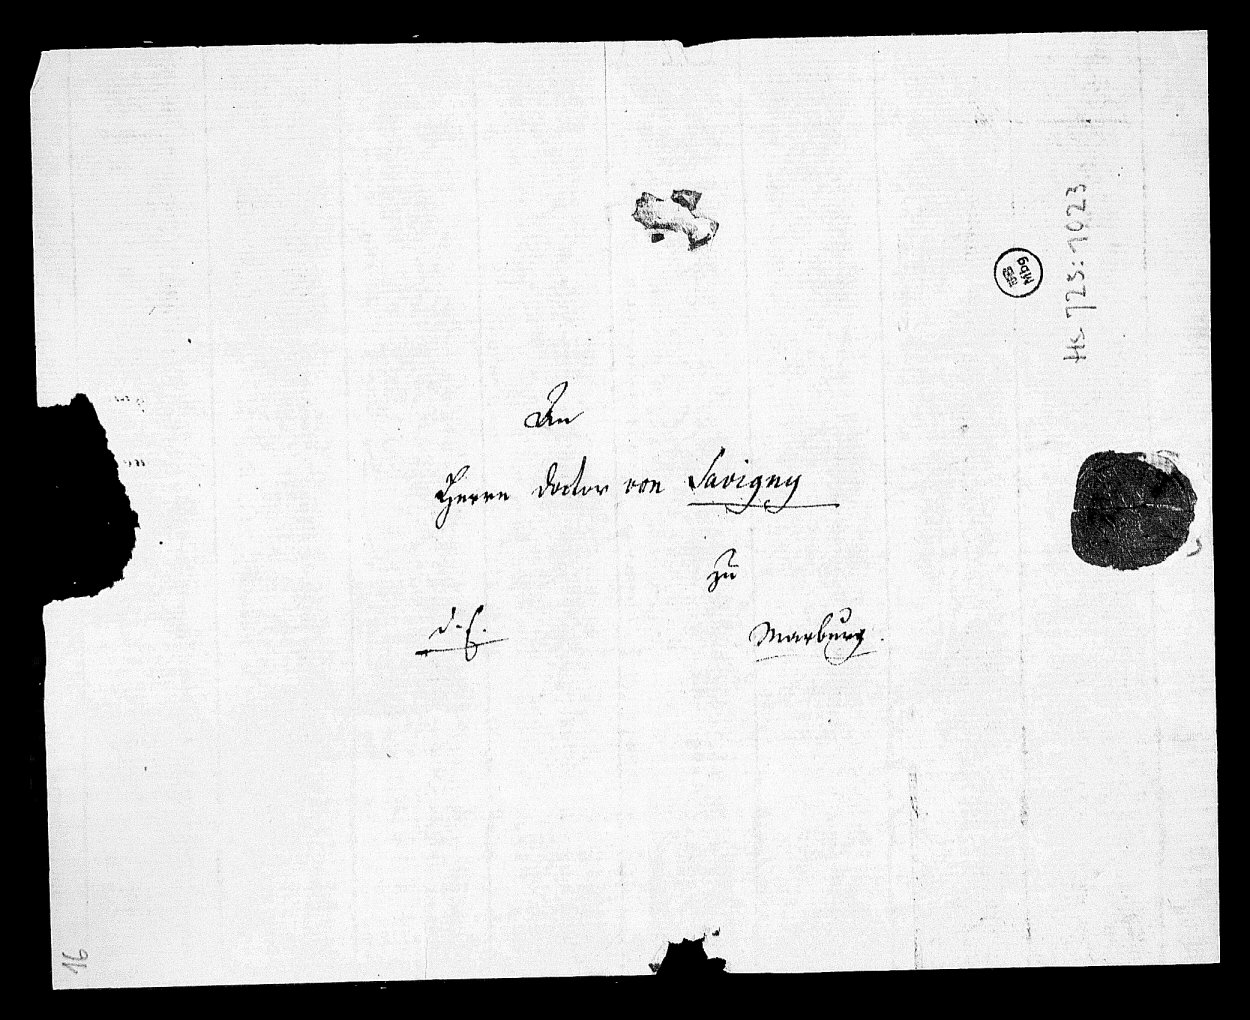 An
Herrn Doctor von Savigny
zu
d. E.
Marburg.
Hs 725:1023
Mbg
16